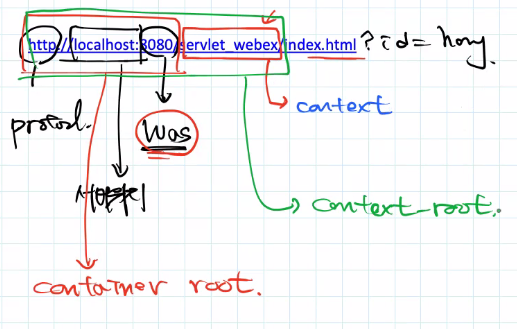 http://localhost:8080/servlet_webex/index.html ? id= hong
context
protocol.
Was
context-root.
container root.